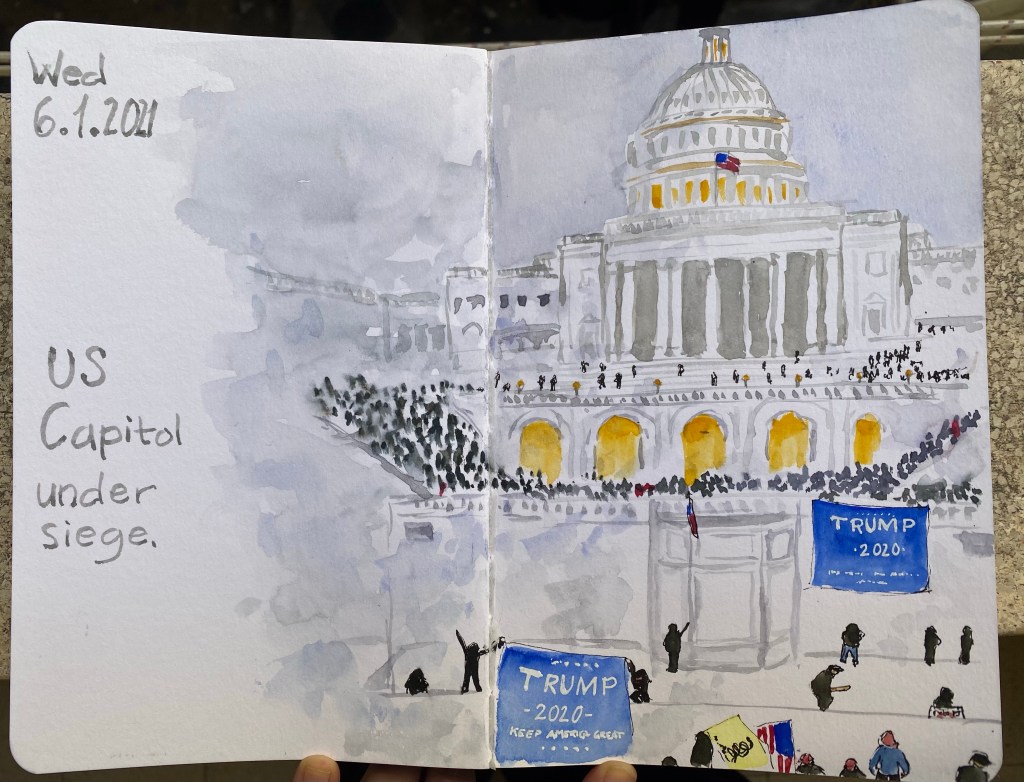 Wed
6.1.2021
US
Capitol
under
siege.
TRUMP
·2020·
TRUMP
-2020-
KEEP AMERICA GREAT